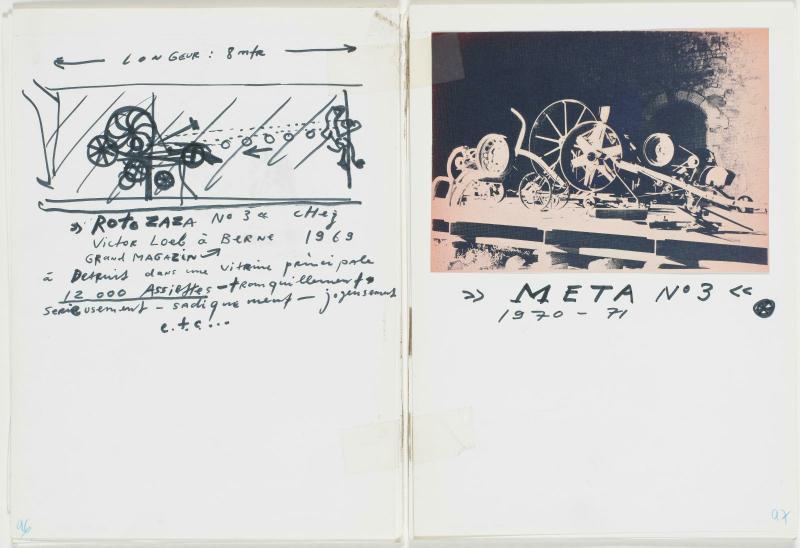 LONGEUR : 8 mtr
» ROTOZAZA No 3 « CHEZ
VICTOR LOEB à BERNE 1969
GRAND MAGAZIN
à DETRUIT dans une vitrine principale
12 000 Assiettes – tranquillement –
serieusement – sadiquement – joyeusement
e.t.c...
96
» META No 3 «
1970 – 71
97